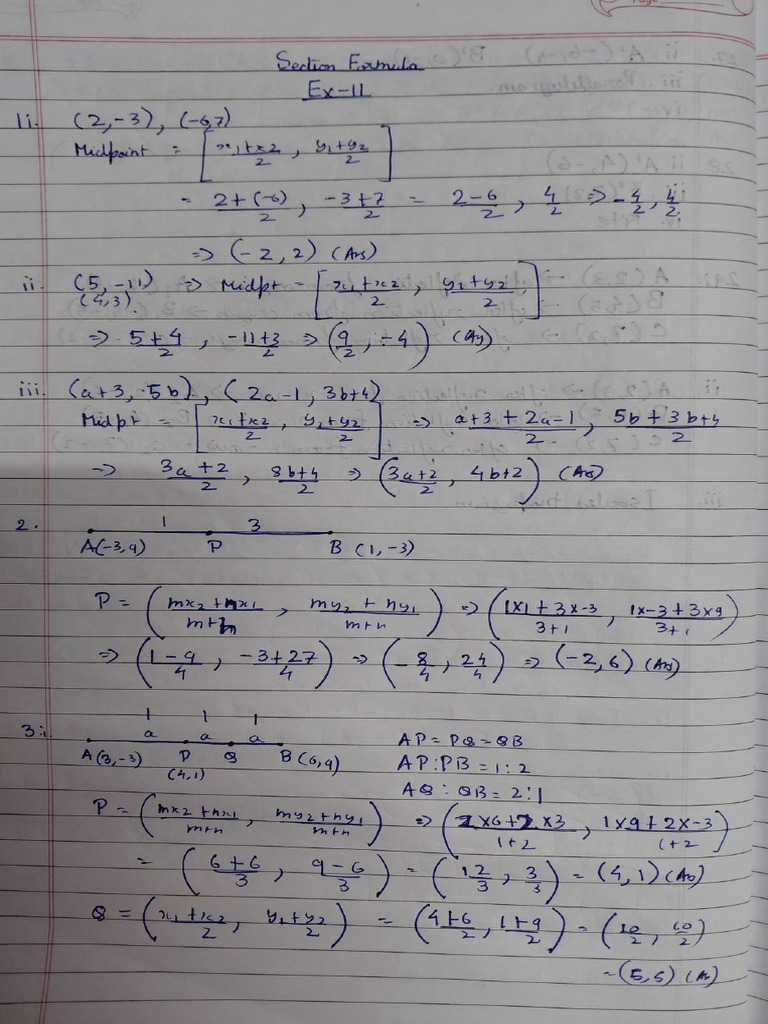 Section Formula
Ex-11
1i. (2,-3), (-6,7)
Midpoint = [x1+x2/2, y1+y2/2]
= 2+(-6)/2, -3+7/2 = 2-6/2, 4/2 => -4/2, 4/2
=> (-2, 2) (Ans)
ii. (5, -11) => Midpt = [x1+x2/2, y1+y2/2]
(4,3).
=> 5+4/2, -11+3/2 => (9/2, -4) (Ans)
iii. (a+3, 5b), (2a-1, 3b+4)
Midpt = [x1+x2/2, y1+y2/2] => a+3+2a-1/2, 5b+3b+4/2
=> 3a+2/2, 8b+4/2 => (3a+2/2, 4b+2) (Ans)
2. 1 3
A(-3,9) P B (1,-3)
P = (mx2+nx1/m+n, my2+ny1/m+n) => (1x1+3x-3/3+1, 1x-3+3x9/3+1)
=> (1-9/4, -3+27/4) => (-8/4, 24/4) => (-2,6) (Ans)
3.i 1 1 1
a a a AP=PQ=QB
A(3,-3) P Q B(6,9) AP:PB=1:2
(4,1) AQ:QB=2:1
P = (mx2+nx1/m+n, my2+ny1/m+n) => (1x6+2x3/1+2, 1x9+2x-3/1+2)
= (6+6/3, 9-6/3) = (12/3, 3/3) = (4,1) (Ans)
Q = (x1+x2/2, y1+y2/2) = (4+6/2, 1+9/2) = (10/2, 10/2)
= (5,5) (Ans)